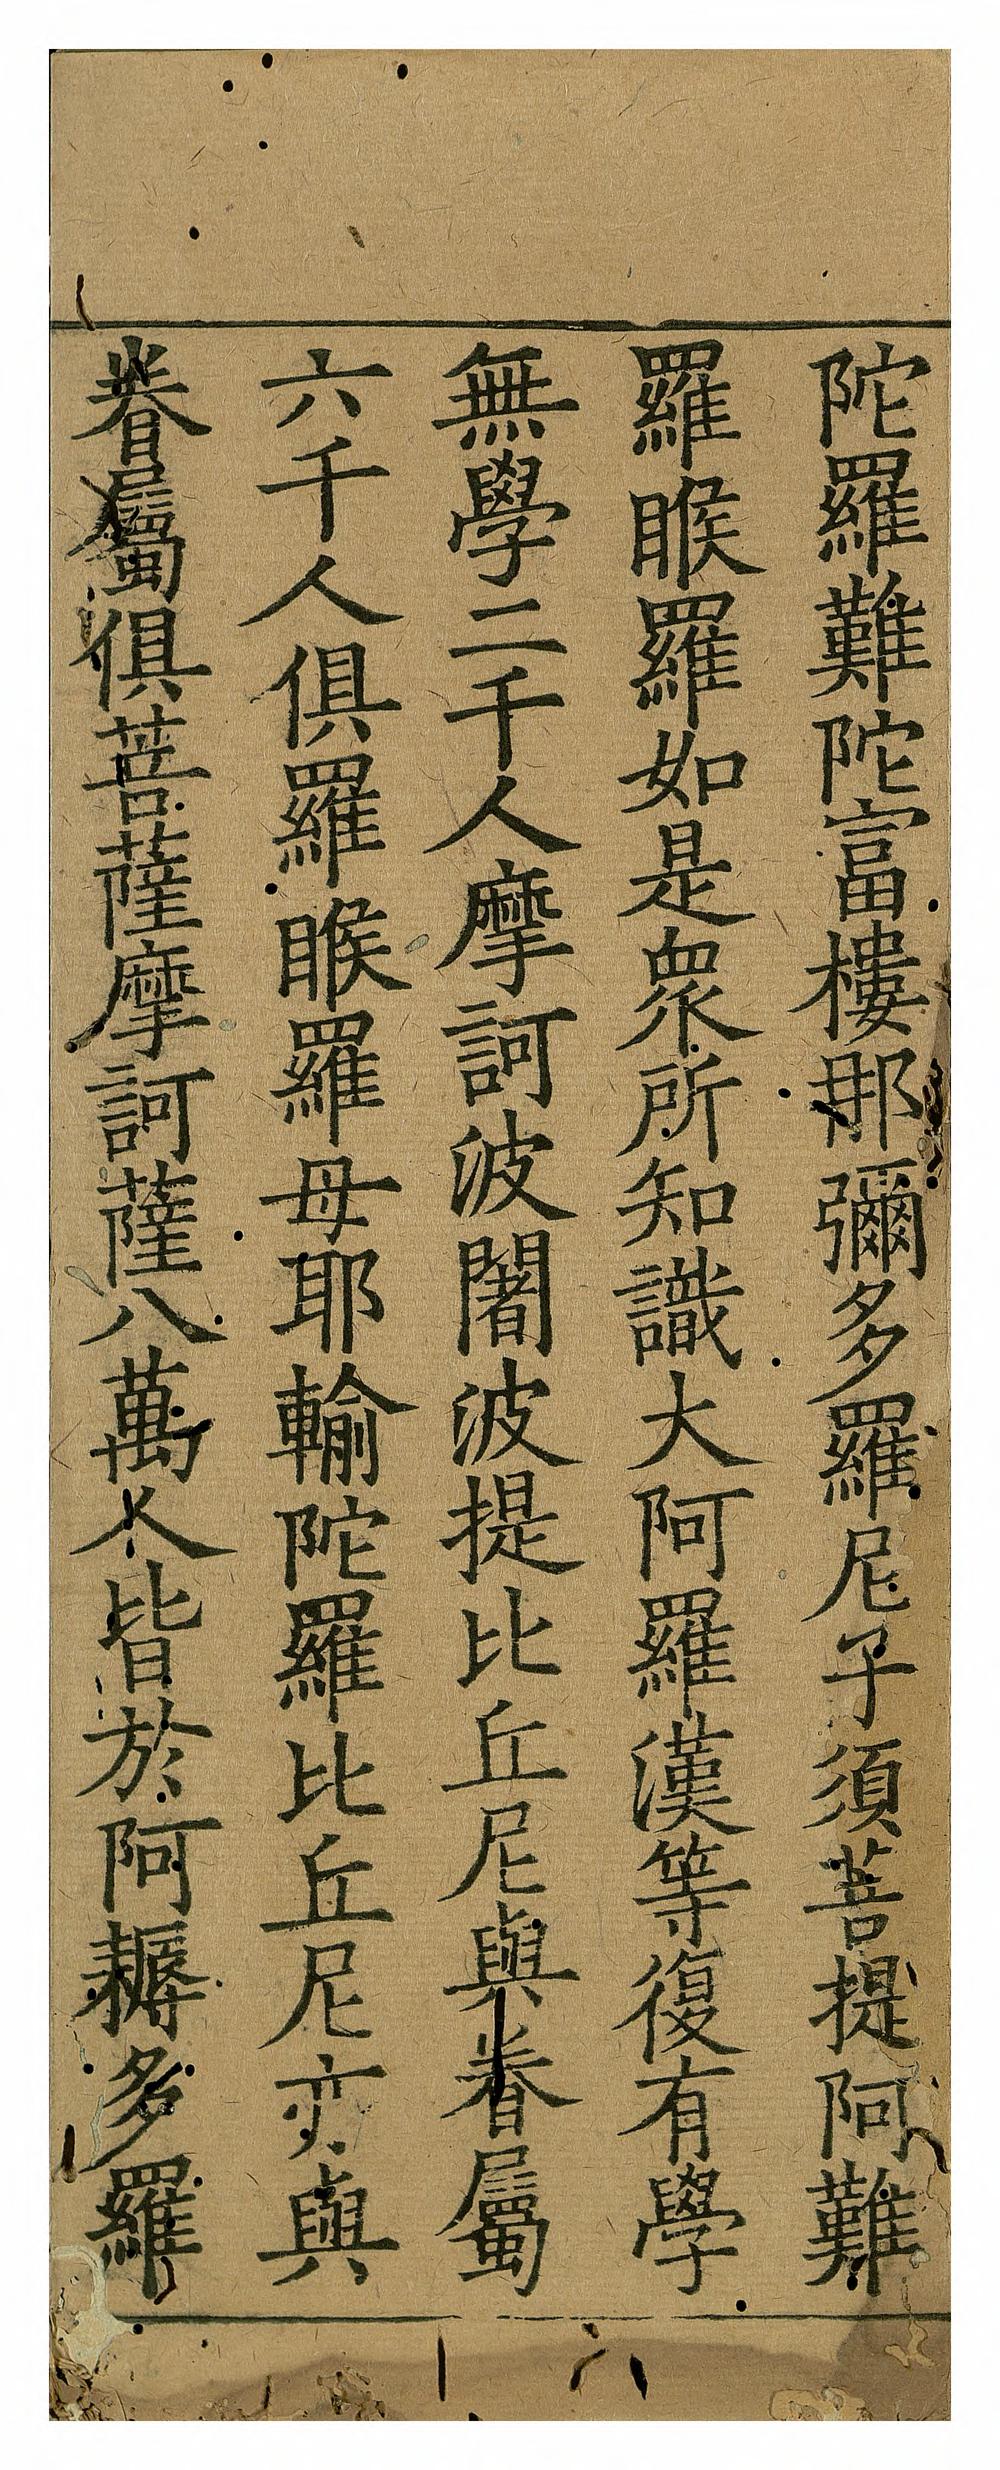 陀羅難陀富樓那彌多羅尼子須菩提阿難
羅睺羅如是衆所知識大阿羅漢等復有學
無學二千人摩訶波闍波提比丘尼與眷屬
六千人俱羅睺羅母耶輸陀羅比丘尼亦與
眷屬俱菩薩摩訶薩八萬人皆於阿耨多羅